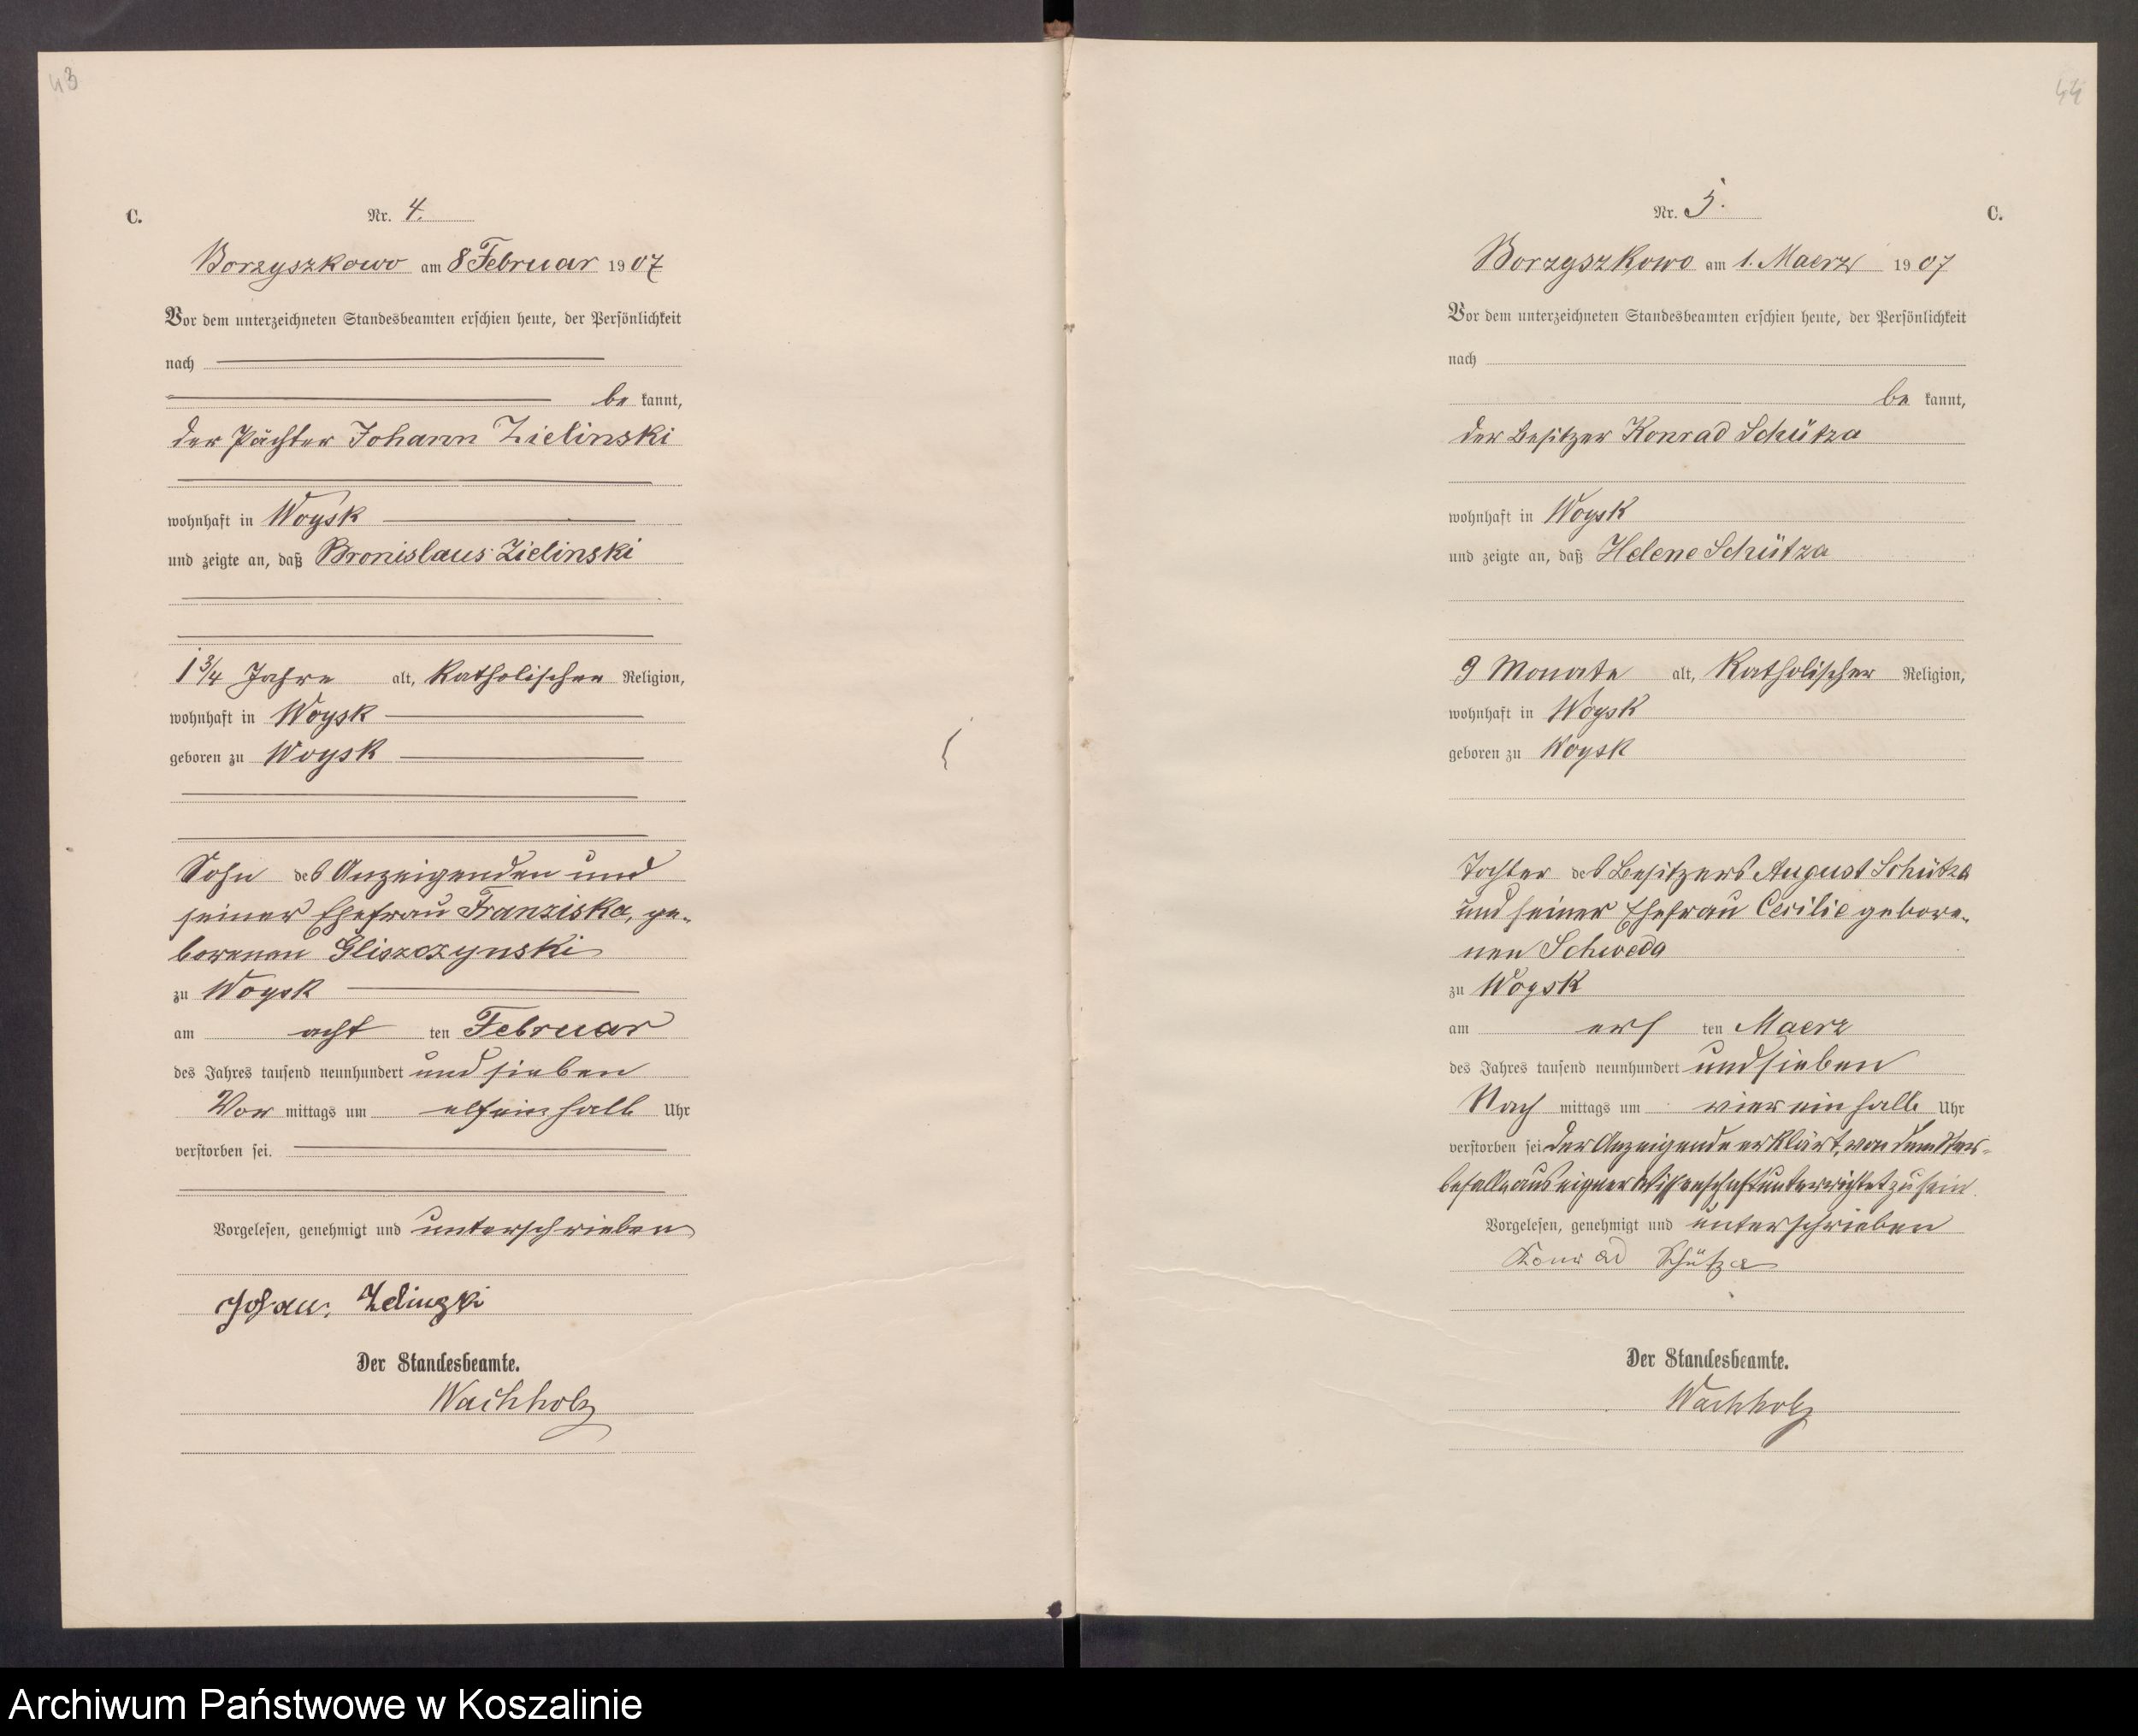 43
C.
Nr. 4.
Borzyszkowo am 8 Februar 1907
Vor dem unterzeichneten Standesbeamten erschien heute, der Persönlichkeit
nach
be kannt,
der Pächter Johann Zielinski
wohnhaft in Woysk
und zeigte an, daß Bronislaus Zielinski
1 3/4 Jahre alt, katholischer Religion,
wohnhaft in Woysk
geboren zu Woysk
Sohn des Anzeigenden und
seiner Ehefrau Franziska, ge-
borenen Gliszczynski
zu Woysk
am acht ten Februar
des Jahres tausend neunhundert und sieben
Vor mittags um elfeinhalb Uhr
verstorben sei.
Vorgelesen, genehmigt und unterschrieben
Johan. Zelinzki
Der Standesbeamte.
Wachholz
44
Nr. 5.
C.
Borzyszkowo am 1. Maerz 1907
Vor dem unterzeichneten Standesbeamten erschien heute, der Persönlichkeit
nach
be kannt,
der Besitzer Konrad Schütza
wohnhaft in Woysk
und zeigte an, daß Helene Schütza
9 Monate alt, katholischer Religion,
wohnhaft in Woysk
geboren zu Woysk
Tochter des Besitzers August Schütza
und seiner Ehefrau Cecilie gebore-
nen Schweda
zu Woysk
am ers ten Maerz
des Jahres tausend neunhundert und sieben
Nach mittags um viereinhalb Uhr
verstorben sei Der Anzeigende erklärt, von dem Ster-
befalle aus eigner Wissenschaft unterrichtet zu sein.
Vorgelesen, genehmigt und unterschrieben
Konrad Schütza
Der Standesbeamte.
Wachholz
Archiwum Państwowe w Koszalinie